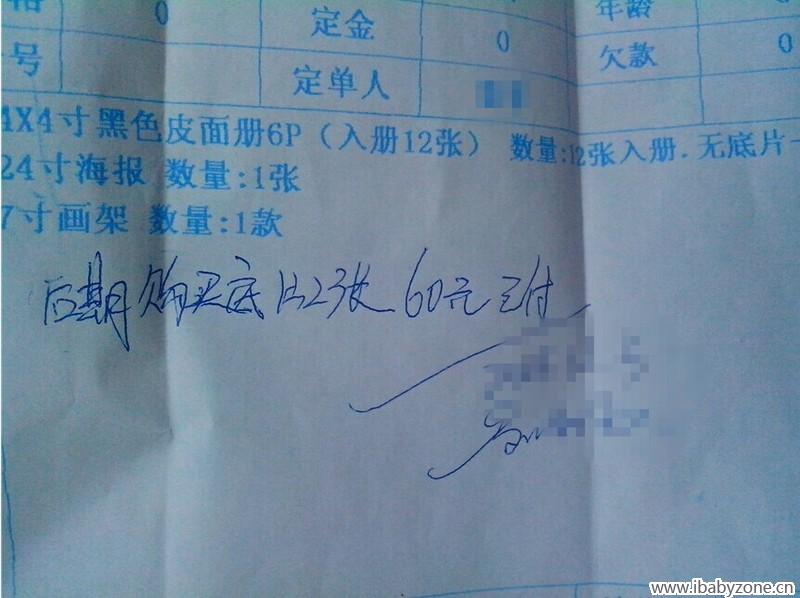 0 定金 0 年龄
号 定单人 欠款 0
4X4寸黑色皮面册6P（入册12张） 数量:12张入册.无底片
24寸海报 数量:1张
7寸画架 数量:1款
后期购买底片2张 60元已付
www.ibabyzone.cn